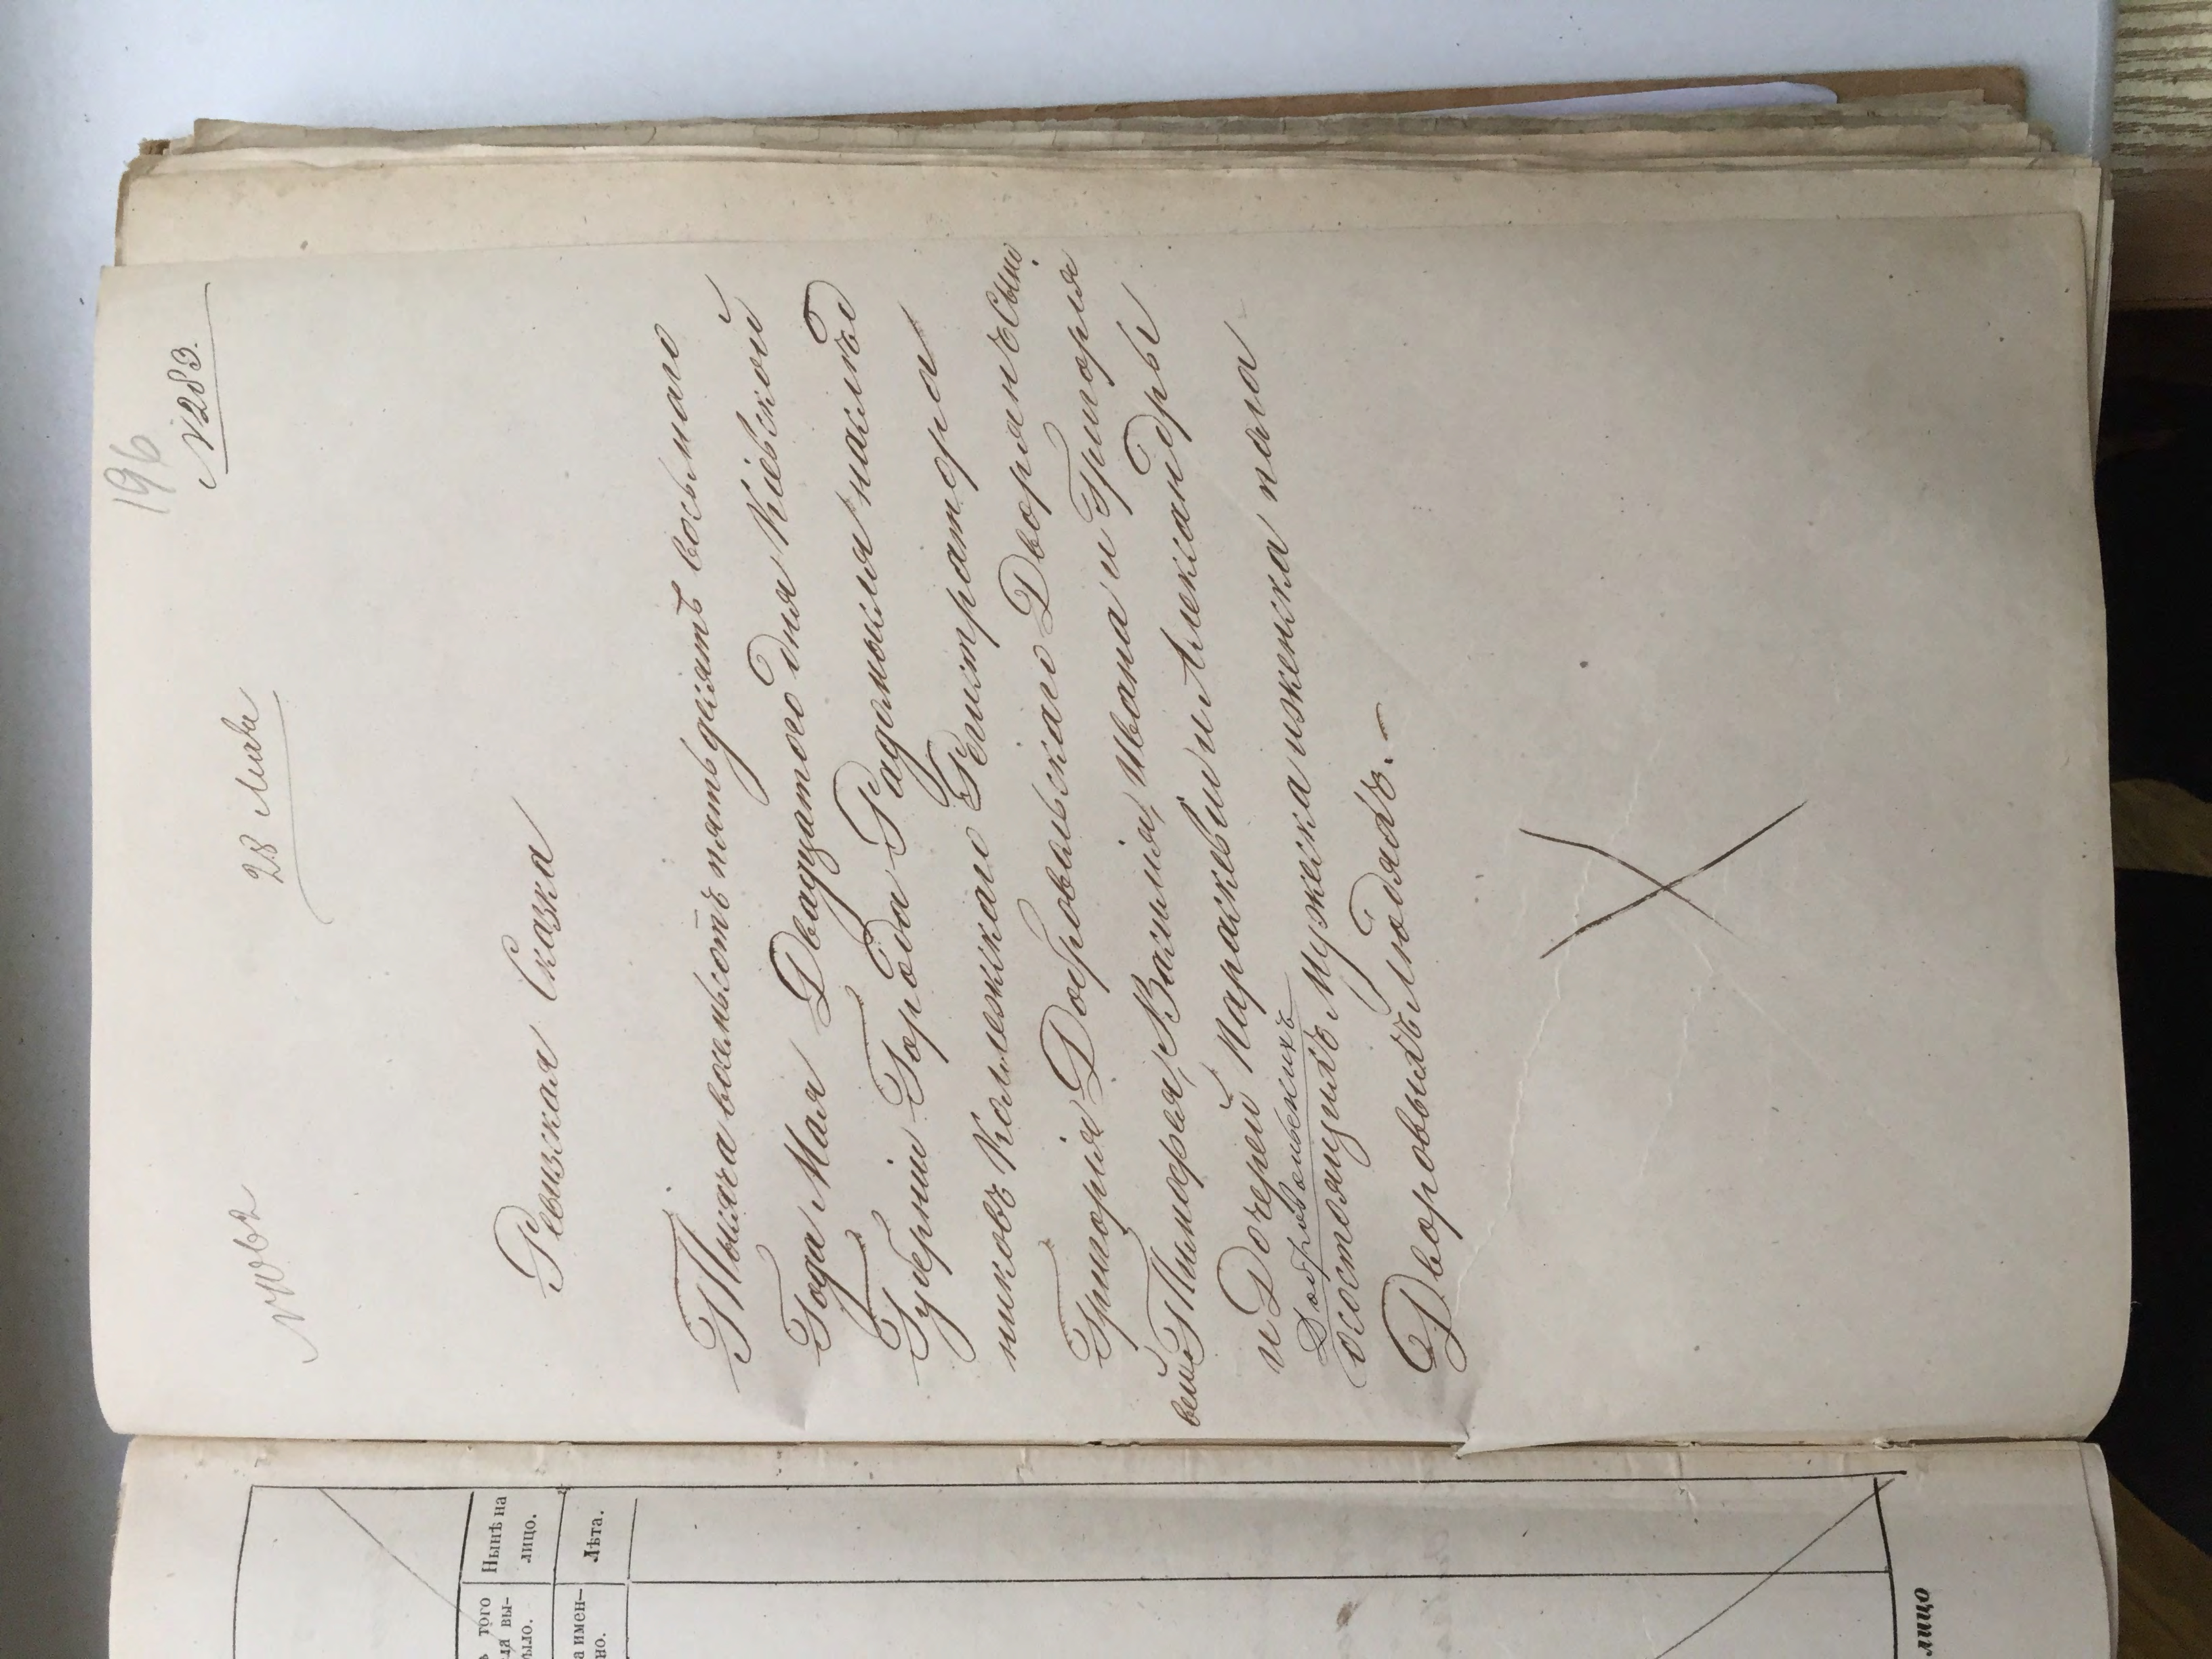 196
№ 283.
28 Мая
Ревизская Сказка
Тысяча восемьсотъ пятьдесятъ восьмаго
Года Мая Двадцатого дня Кіевской
Губерніи Города Радомысля наслѣд
никовъ Коллежскаго Регистратора
Григорія Добровольскаго Дворянъ Сыно
вей Тимофея, Василія, Ивана и Григорія
и Дочерей Параскевіи и Александры
Добровольскихъ
состоящихъ мужеска и женска пола
Дворовыхъ людяхъ. —
Нынѣ на
лицо.
Лѣта.
того
ыло.
а имен-
но.
лицо